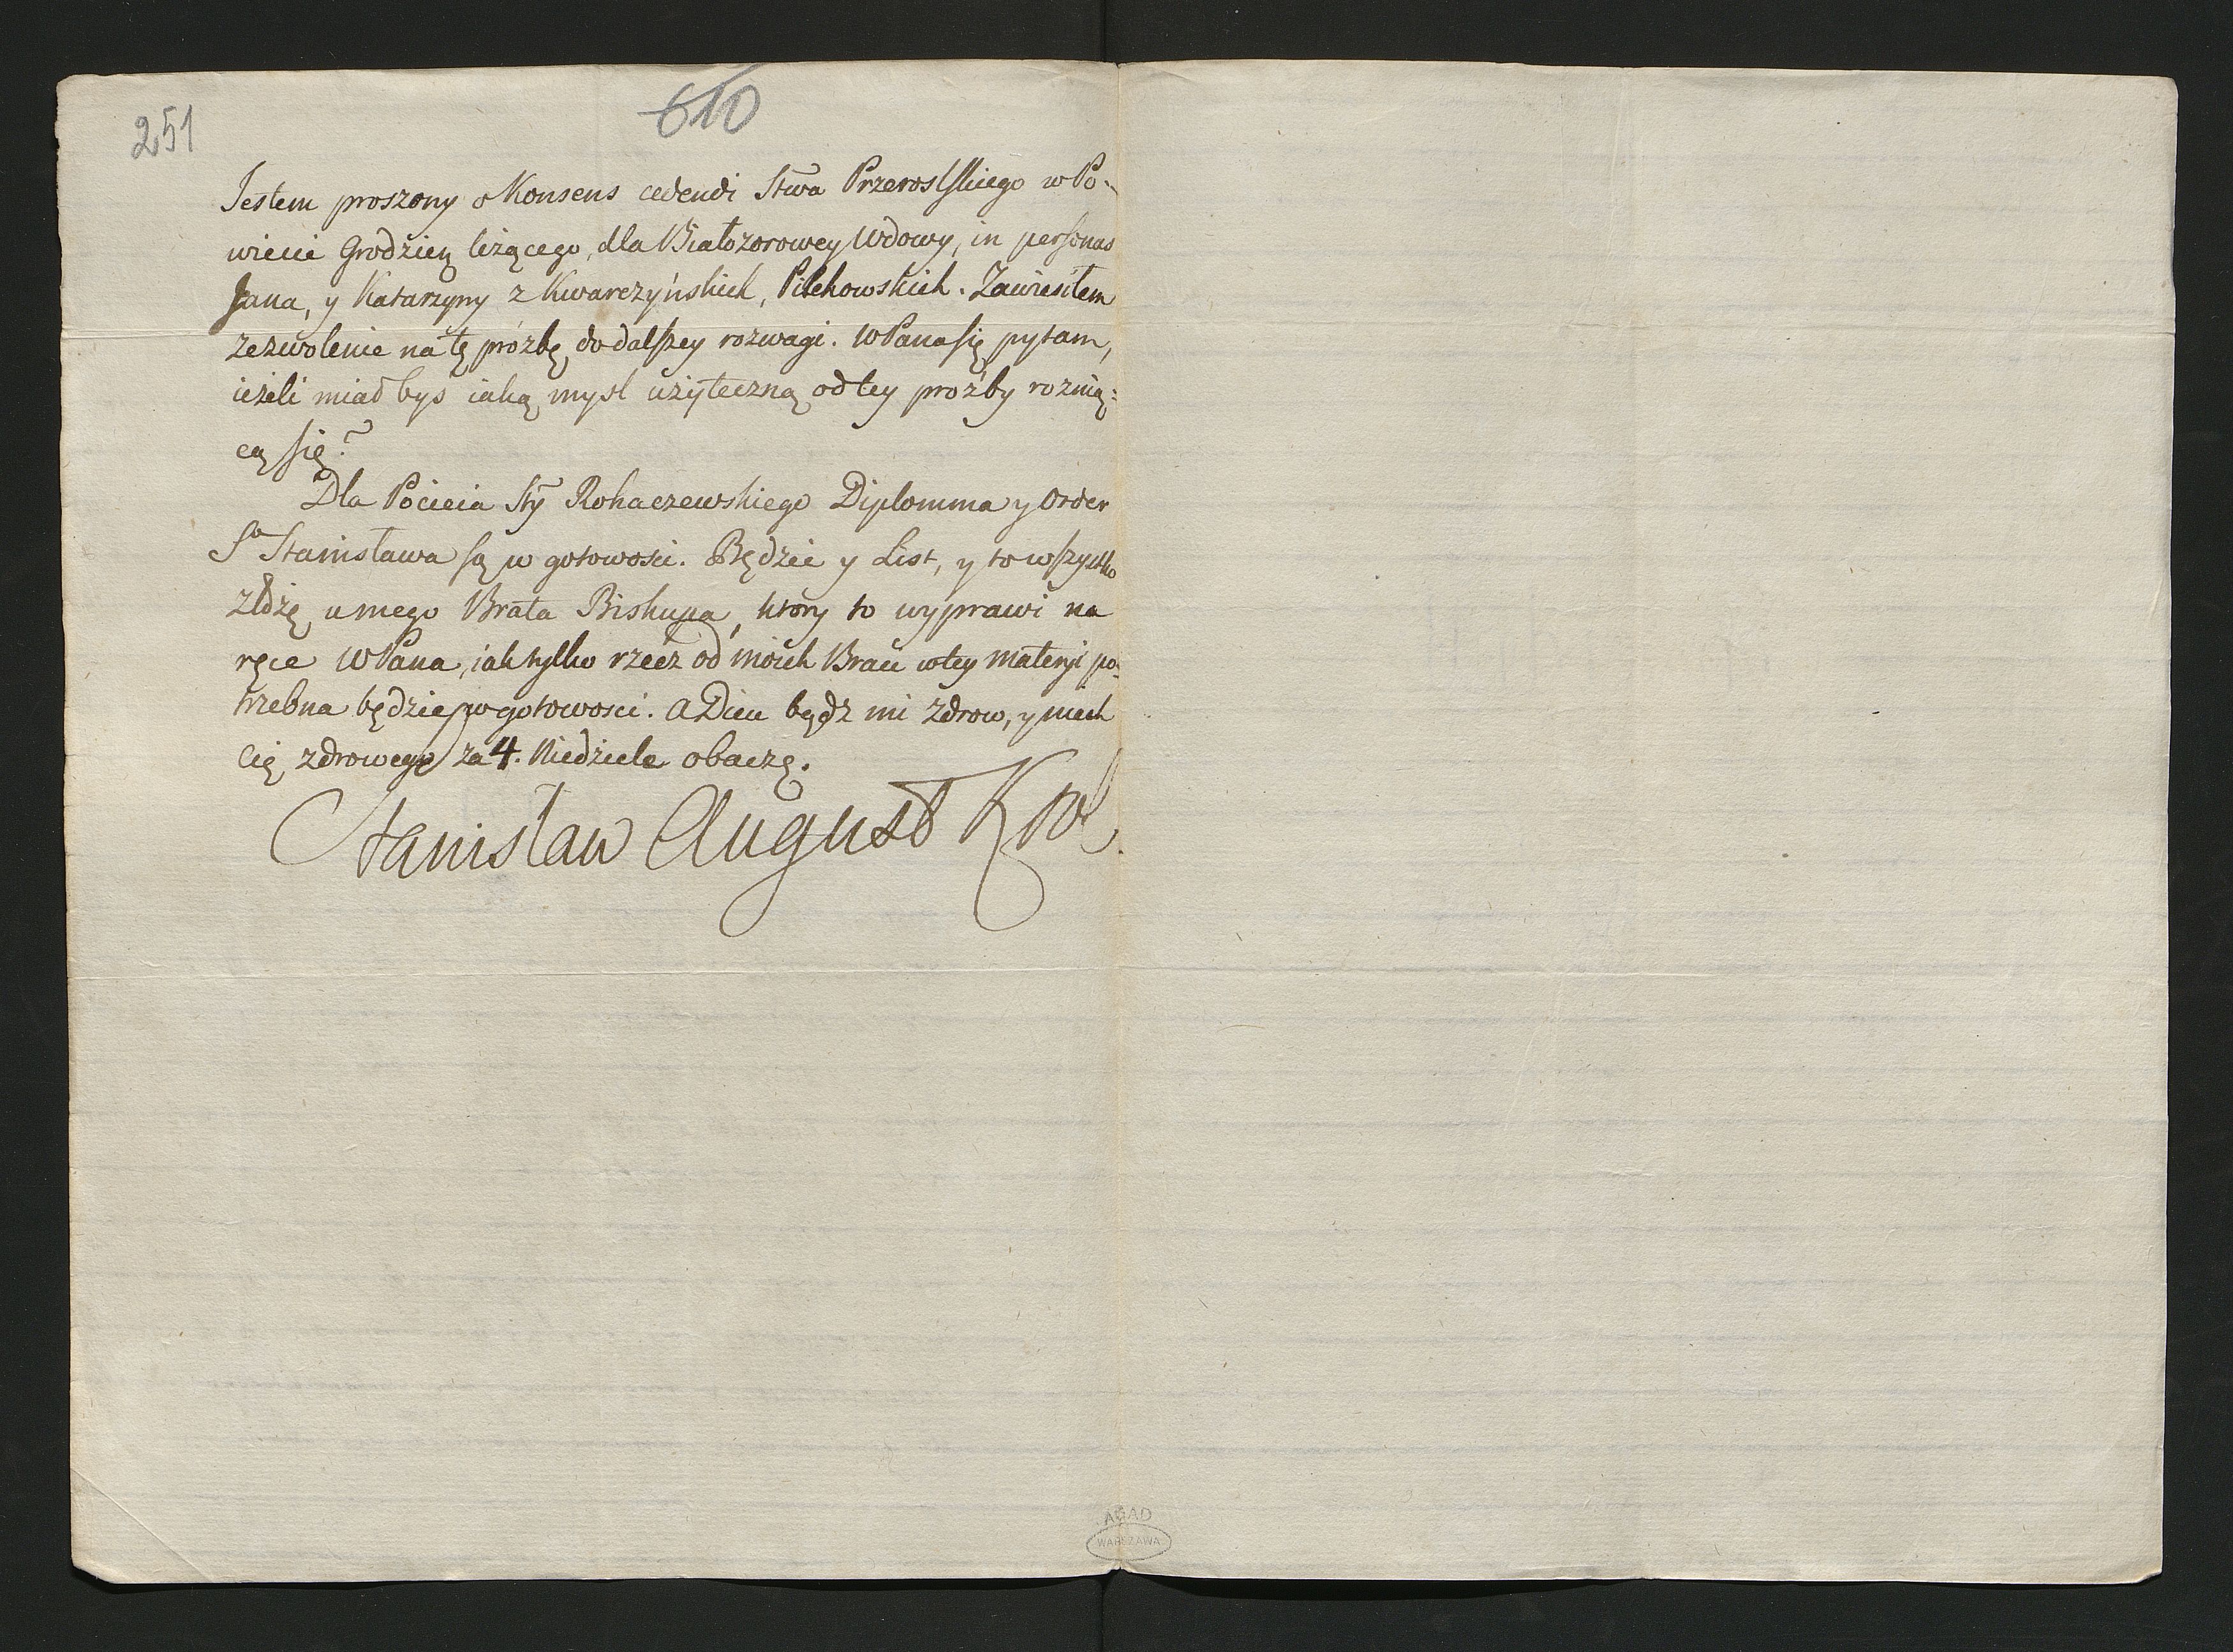 251
610
Jestem proszony o Konsens cedendi Stwa Przeroslskiego w Po-
wiecie Grodzień leżącego, dla Białozorowey Wdowy, in personas
Jana, y Katarzyny z Kwarczyńskich, Pilchowskich. Zawiesiłem
zezwolenie na tę proźbę do dalszey rozwagi. WPana się pytam,
ieżeli miał byś iaką mysl użyteczną od tey proźby roznią=
cą się?
Dla Pocieia Sty Rohaczewskiego Diplomma y Order
Sgo Stanisława są w gotowosci. Będzie y List, y to wszystko
złożę u mego Brata Biskupa, ktory to wyprawi na
ręce WPana, iak tylko rzecz od moich Braci w tey materyi po-
trzebna będzie w gotowosci. a Dieu bądz mi zdrow, y niech
Cię zdrowego za 4. Niedziele obaczę.
Stanisław August Krol.
AGAD
WARSZAWA